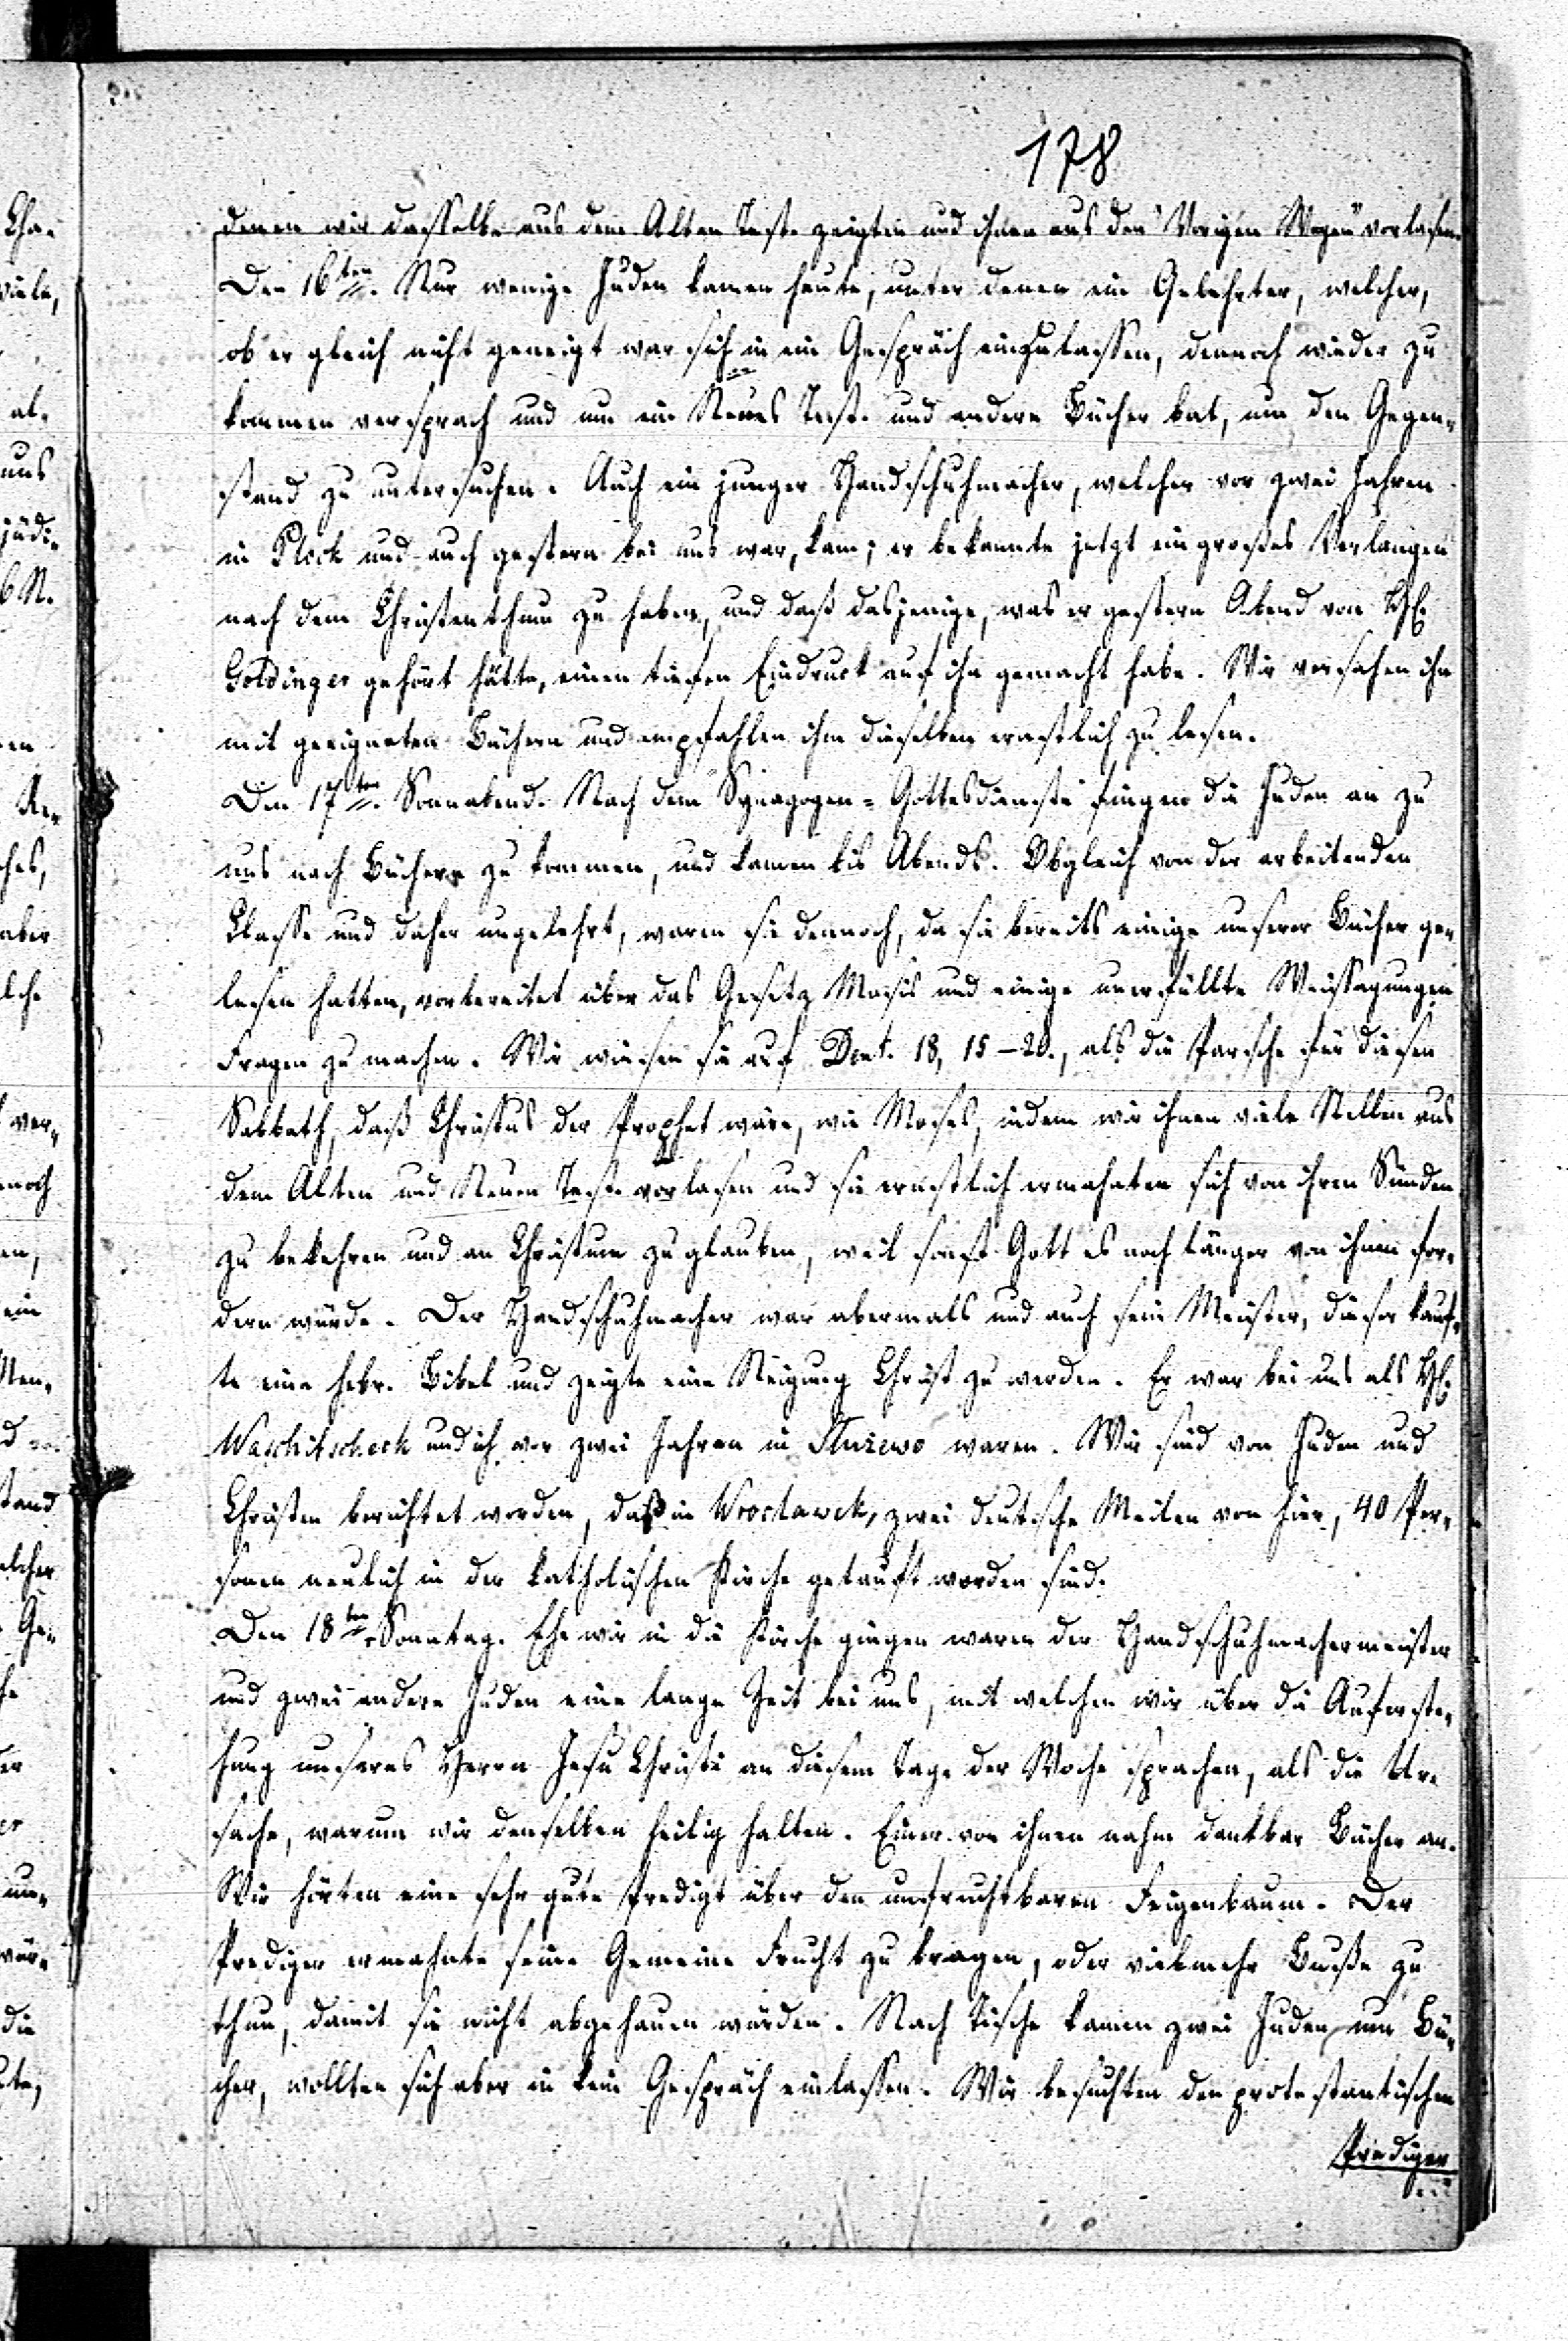 178
denen wir dasselbe aus dem Alten Test. zeigten und ihnen aus den "Vorigen Wegen" vorlasen.
Den 16ten. Nur wenige Juden kamen heute, unter denen ein Gelehrter, welcher,
ob er gleich nicht geneigt war sich in ein Gespräch einzulassen, dennoch wieder zu
kommen versprach und um ein Neues Test. und andere Bücher bat, um den Gegen-
stand zu untersuchen. Auch ein junger Handschuhmacher, welcher vor zwei Jahren
in Plock und auch gestern bei uns war, kam; er bekannte jetzt ein großes Verlangen
nach dem Christenthum zu haben, und daß dasjenige, was er gestern Abend von H.
Goldinger gehört hätte, einen tiefen Eindruck auf ihn gemacht habe. Wir versahen ihn
mit geeigneten Büchern und empfahlen ihm dieselben ernstlich zu lesen.
Den 17ten. Sonnabend. Nach dem Synagogen-Gottesdienste fingen die Juden an zu
uns nach Büchern zu kommen, und kamen bis Abends. Obgleich von der arbeitenden
Classe und daher ungelehrt, waren sie dennoch, da sie bereits einige unserer Bücher ge-
lesen hatten, vorbereitet über das Gesetz Mosis und einige unerfüllte Weissagungen
Fragen zu machen. Wir wiesen sie auf Deut. 18, 15-20., als die Parsche für diesen
Sabbath, daß Christus der Prophet wäre, wie Moses, indem wir ihnen viele Stellen aus
dem Alten und Neuen Test. vorlasen und sie ernstlich ermahnten sich von ihren Sünden
zu bekehren und an Christum zu glauben, weil sonst Gott es noch länger von ihnen for-
dern würde. Der Handschuhmacher war abermals und auch sein Meister, dieser kauf-
te eine hebr. Bibel und zeigte eine Neigung Christ zu werden. Er war bei uns als H.
Waschitscheck und ich vor zwei Jahren in waren. Wir sind von Juden und
Christen berichtet worden, daß in Wroclawek, zwei deutsche Meilen von hier, 40 Per-
sonen neulich in der katholischen Kirche getauft worden sind.
Den 18ten. Sonntag. Ehe wir in die Kirche gingen waren der Handschuhmachermeister
und zwei andere Juden eine lange Zeit bei uns, mit welchen wir über die Auferste-
hung unseres Herrn Jesu Christi an diesem Tage der Woche sprachen, als die Ur-
sache, warum wir denselben heilig halten. Einer von ihnen nahm dankbar Bücher an.
Wir hörten eine sehr gute Predigt über den unfruchtbaren Feigenbaum. Der
Prediger ermahnte seine Gemeine Frucht zu tragen, oder vielmehr Buße zu
thun, damit sie nicht abgehauen würden. Nach Tische kamen zwei Juden um Bü-
cher, wollten sich aber in kein Gespräch einlassen. Wir besuchten den protestantischen
Prediger